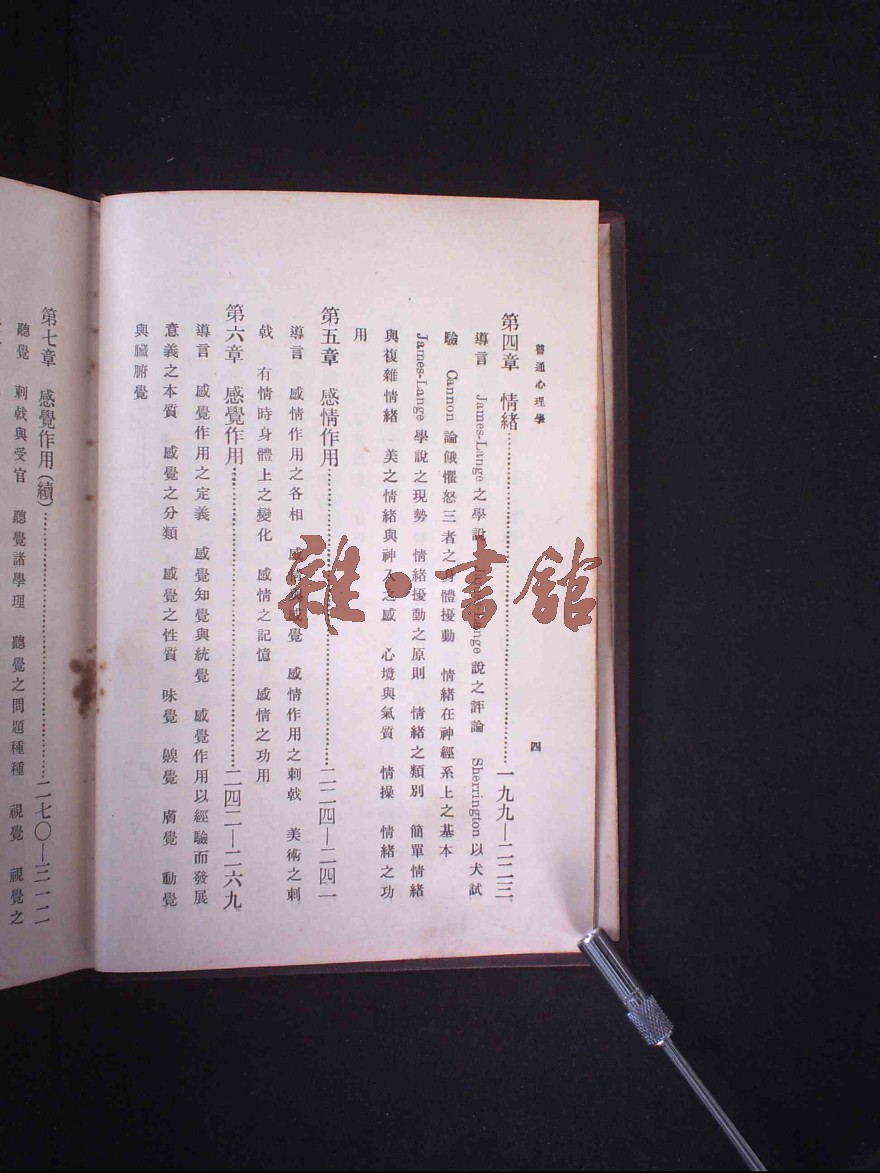 普通心理學
四
第四章 情緒……一九九—二二三
導言 James-Lange 之學說 James-Lange 說之評論 Sherrington 以犬試
驗 Cannon 論餓懼怒三者之身體擾動 情緒在神經系上之基本
James-Lange 學說之現勢 情緒擾動之原則 情緒之類別 簡單情緒
與複雜情緒 美之情緒與神人之感 心境與氣質 情操 情緒之功
用
第五章 感情作用……二二四—二四一
導言 感情作用之各相 感情與感覺 感情作用之刺戟 美術之刺
戟 有情時身體上之變化 感情之記憶 感情之功用
第六章 感覺作用……二四二—二六九
導言 感覺作用之定義 感覺知覺與統覺 感覺作用以經驗而發展
意義之本質 感覺之分類 感覺之性質 味覺 嗅覺 膚覺 動覺
與臟腑覺
第七章 感覺作用(續)……二七〇—三一二
聽覺 刺戟與受官 聽覺諸學理 聽覺之問題種種 視覺 視覺之
雜·書館